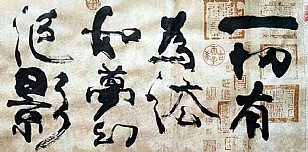 一切有
為法
如夢幻
泡影